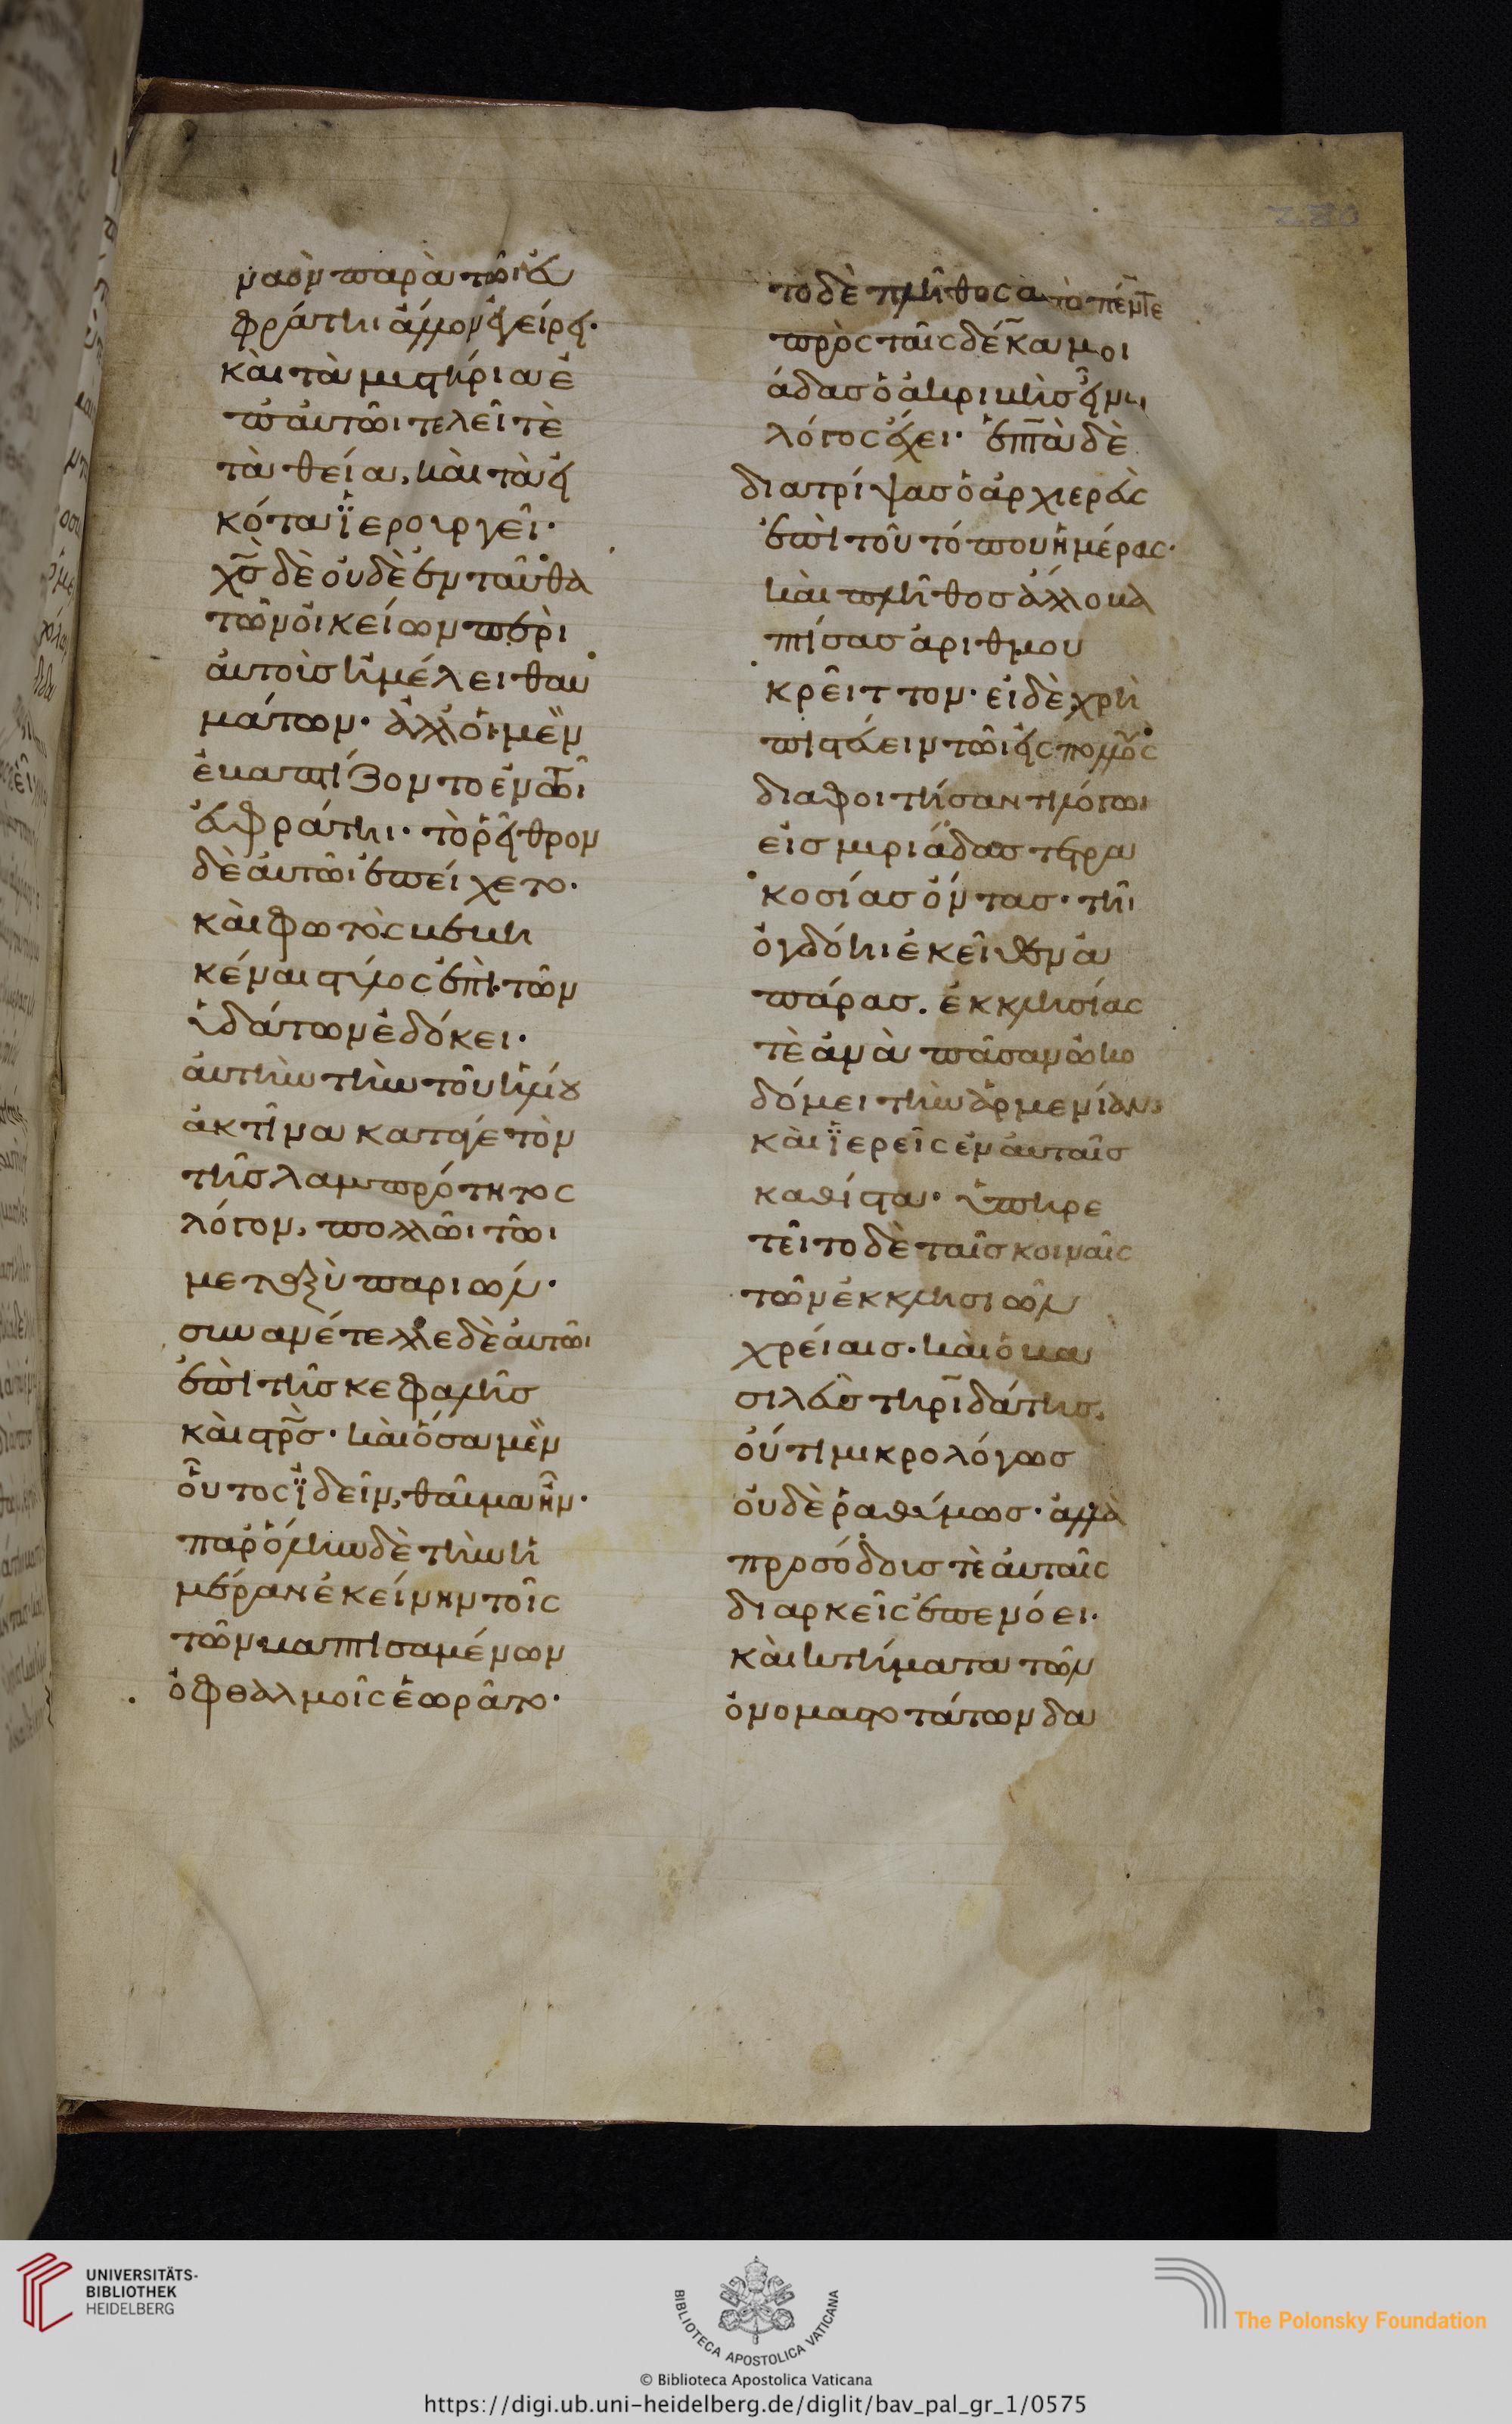 ναὸν παρὰ τῶι ἐυ
φράτηι ἄλλον ἐγείρει·
καὶ τὰ μυστήρια ἐ
π αυτῶι τελεῖ τὲ
τὰ θεία, καὶ τὰ εἰ
κότα ϊερουργεῖ·
χ̅σ̅ δὲ οὐδὲ ἐνταῦθα
τῶν οἰκείων περὶ
αὐτοὺσ ἠμέλει θαυ
μάτων· ἀλλ οἱ μὲν
ἐβαπτίζοντο ἐν αυτῶι
ἐυφράτηι· τὸ ῥεῖθρον
δὲ αὐτῶι ἐπείχετο·
καὶ φωτὸς νεφέλη
κέναι στύλος ἐπὶ τῶν
ὑδάτων ἐδόκει·
ἀυτὴν τὴν τοῦ ἡλίου
ἀκτῖνα κατα τὸν
τῆσ λαμπρότητος
λόγον, πολλῶι τῶι
μεταξὺ παριών·
συνανέτελλε δὲ ἀυτῶι
ἐπὶ τῆσ κεφαλῆσ
καὶ στ̅ρ̅ο̅σ̅· καὶ ὅσα μὲν
οὗτος ϊδεῖν, θαῦμα ἦν·
παρ ὅλην δὲ τὴν ἡ
μέραν ἐκείνην τοῖς
τῶν βαπτισαμένων
ὀφθαλμοῖς ἑωρᾶτο·
το δὲ πλῆθοσ αυτὸ πέντε
πρὸς ταῖς δέκα μυρι
άδασ ὁ ἀκριβὴσ ἡμῖν
λόγος ἔχει· ἑπτὰ δὲ
διατρίψασ ὁ ἀρχιερεὺς
ἐπὶ τοῦ τόπου ἡμέρας·
καὶ πλῆθοσ ἄλλο βα
πτίσασ ἀριθμοῦ
κρεῖττον· εἰ δὲ χρὴ
πιστεύειν τῶι
διαφοιτήσαντι λόγωι
εἰσ μυριάδασ τετρα
κοσίασ ὄντασ· τῆι
ὀγδόηι ἐκεῖθεν ἀ
πάρασ. ἐκκλησίας
τὲ ἀνὰ πᾶσαν ὠκο
δόμει τὴν ἀρμενίαν,
καὶ ϊερεῖς ἐν αυταῖσ
καθίστα· ὑπηρε
τεῖτο δὲ ταῖσ κοιναῖς
τῶν ἐκκλησιῶν
χρείαισ· καὶ ὁ βα
σιλεὺσ τηριδάτησ,
οὔτι μικρολόγωσ
οὐδὲ ῥαθύμωσ· ἀλλὰ
προσόδουσ τὲ ἀυταῖς
διαρκεῖς ἀπένόει·
καὶ κτήματα τῶν
ὀνομαστοτάτων δα
UNIVERSITÄTS-
BIBLIOTHEK
HEIDELBERG
BIBLIOTECA APOSTOLICA VATICANA
The Polonsky Foundation
© Biblioteca Apostolica Vaticana
https://digi.ub.uni-heidelberg.de/diglit/bav_pal_gr_1/0575